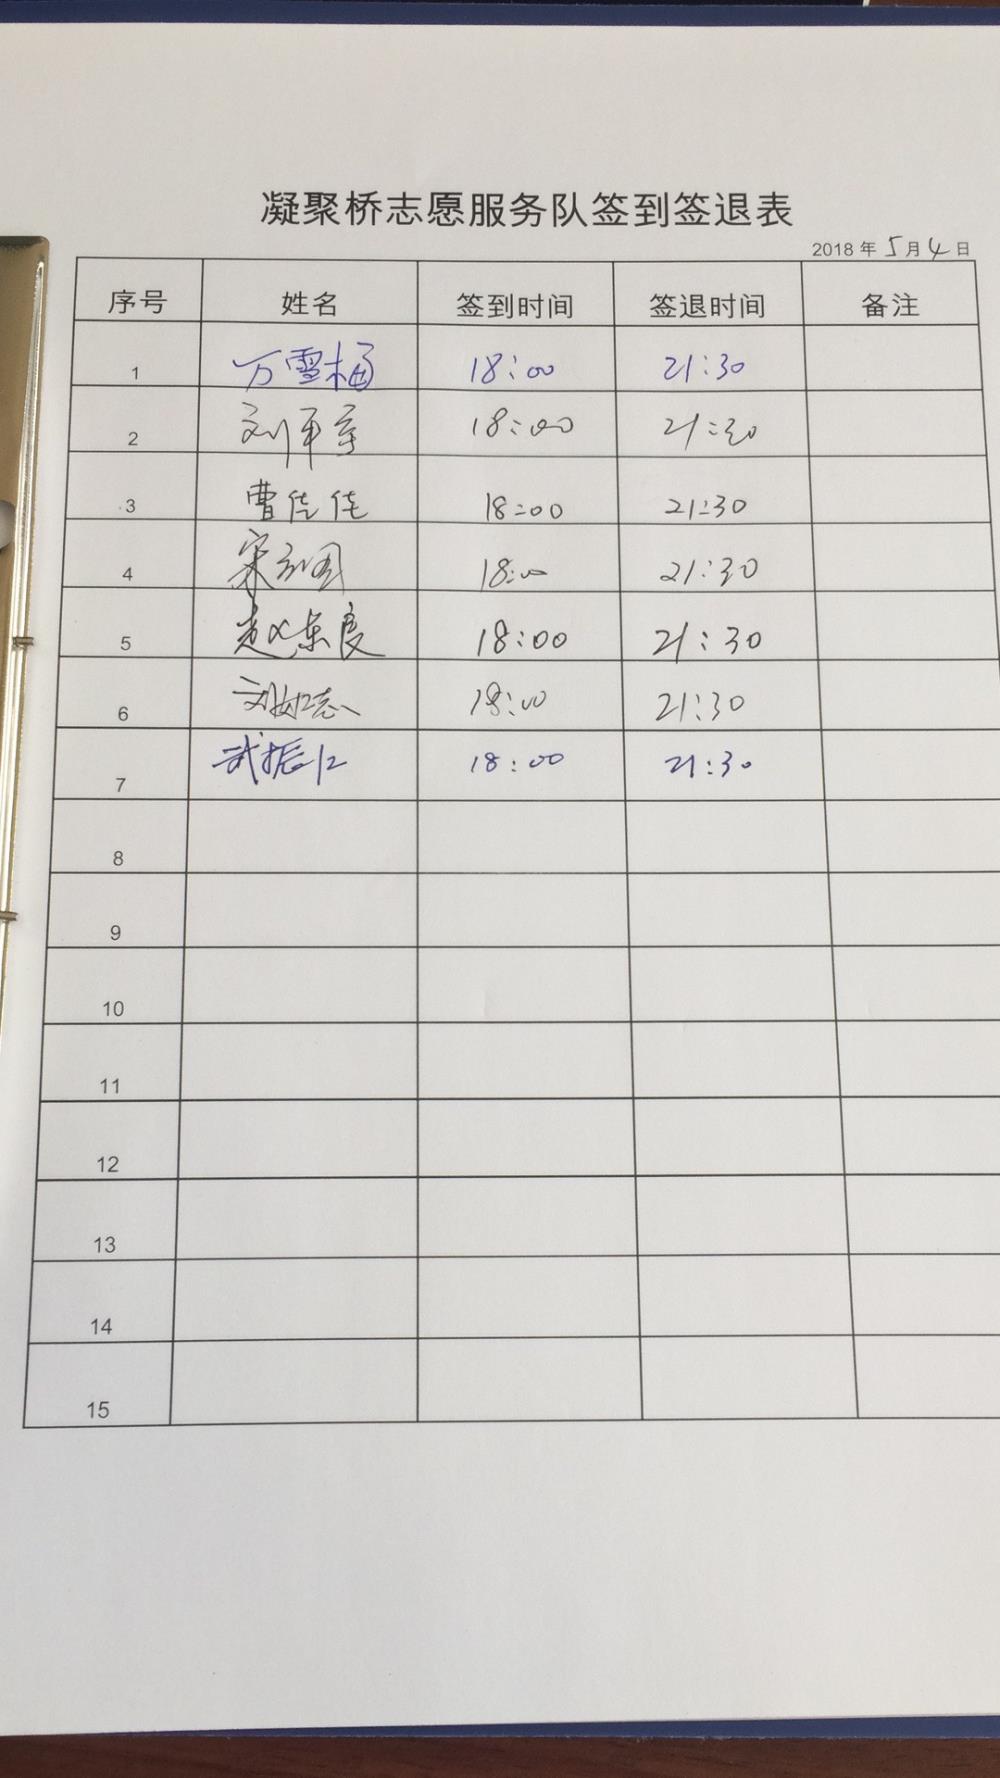 凝聚桥志愿服务队签到签退表
2018 年 5 月 4 日
序号 姓名 签到时间 签退时间 备注
1 万雪梅 18:00 21:30
2 刘军 18:00 21:30
3 曹佳佳 18:00 21:30
4 宋 18:00 21:30
5 赵东 18:00 21:30
6 刘 志 18:00 21:30
7 武振江 18:00 21:30
8
9
10
11
12
13
14
15